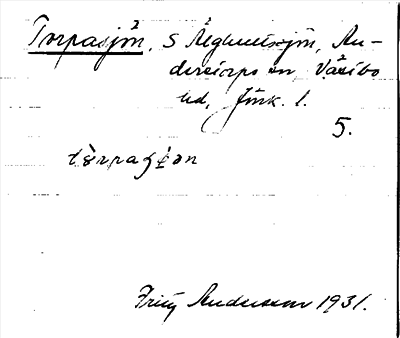 Torpasjön, S Älghultsjön, An-
derstorps sn, Västbo
hd, Jönk. l.
5.
Fritz Andersson 1931.